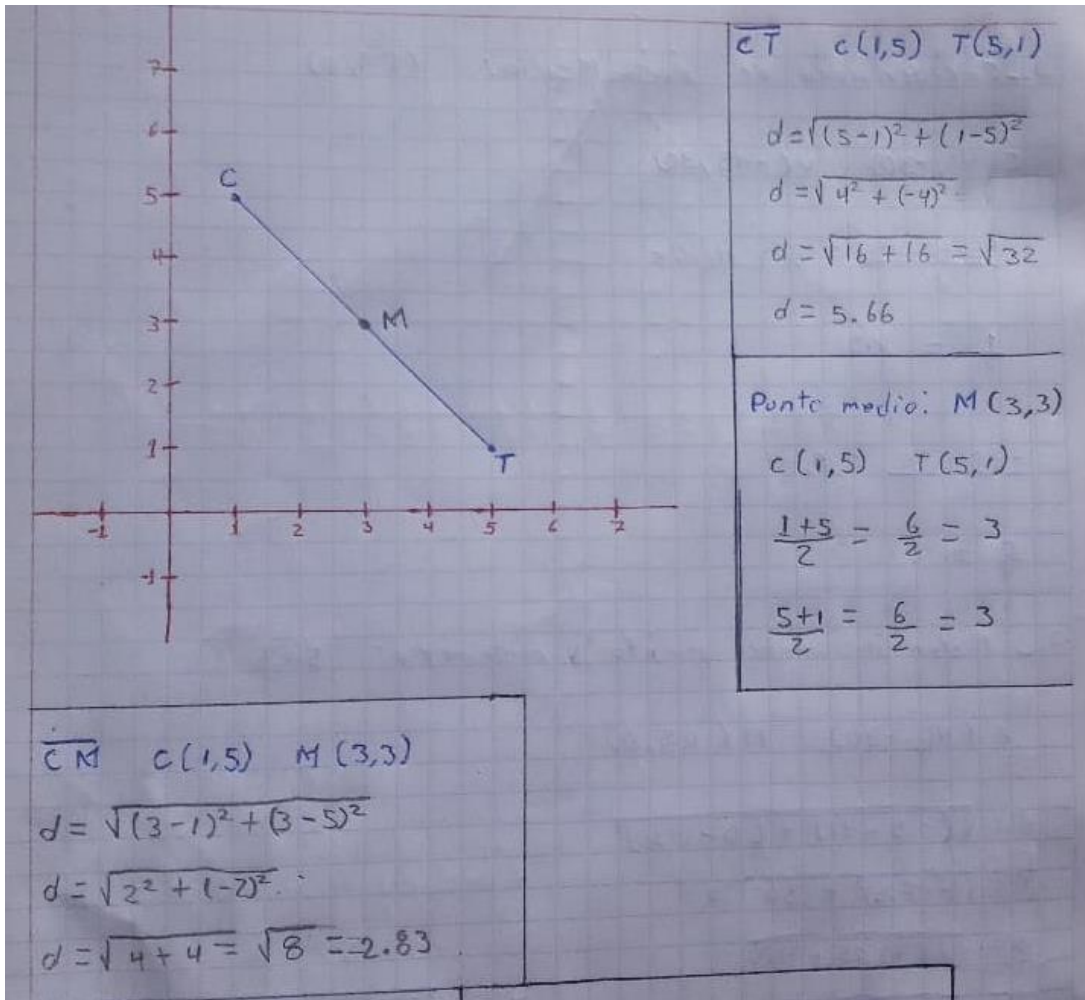 7
6
5
4
3
2
1
-1
-1 1 2 3 4 5 6 7
C
M
T
CT C(1,5) T(5,1)
d=√(5-1)²+(1-5)²
d=√4²+(-4)²
d=√16+16 = √32
d= 5.66
Punto medio: M(3,3)
C(1,5) T(5,1)
1+5/2 = 6/2 = 3
5+1/2 = 6/2 = 3
CM C(1,5) M(3,3)
d=√(3-1)²+(3-5)²
d=√2²+(-2)²
d=√4+4=√8=2.83